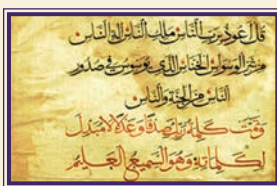 قل أعوذ برب الناس ملك الناس إله الناس
من شر الوسواس الخناس الذي يوسوس في صدور
الناس من الجنة والناس
وتمت كلمة ربك صدقا وعدلا لا مبدل
لكلماته وهو السميع العليم